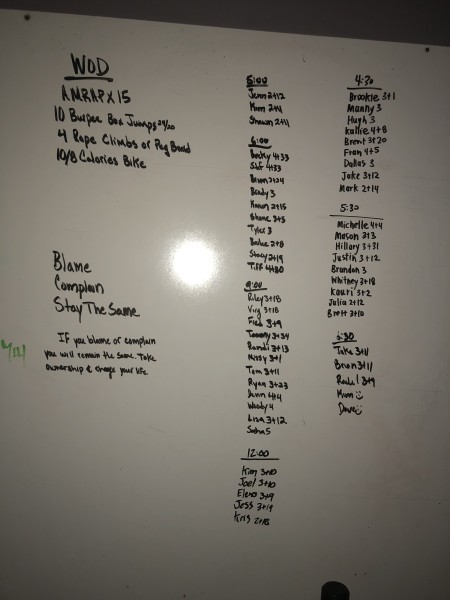 WOD
AMRAP x 15
10 Burpee Box Jumps 24/20
4 Rope Climbs or Peg Board
10/8 Calories Bike
Blame
Complain
Stay The Same
If you blame or complain
you will remain the same. Take
ownership & change your life.
5:00
Jenn 2+12
Kim 2+4
Shawn 2+11
6:00
Becky 4+33
4+33
2+24
Brady 3
2+15
Shane 3+5
Tyler 3
2+8
Stacy 2+19
Tiff 4+30
9:00
Riley 3+18
Virg 3+18
Fred 3+9
Tammy 3+34
Randi 3+13
Missy 3+1
Tom 3+11
Ryan 3+23
4+4
Woody 4
Lisa 3+12
5
12:00
Kim 3+10
Joel 3+10
3+9
Jess 3+19
Kris 2+18
4:30
Brookie 3+1
Manny 3
Hugh 3
Kallie 4+8
Brent 3+20
Fran 4+5
Dallas 3
Jake 3+12
Mark 2+14
5:30
Michelle 4+4
Mason 2+3
Hillary 3+31
Justin 3+12
Brandon 3
Whitney 3+18
Kauri 3+2
Julia 2+12
Brett 3+10
:30
Brian 3+11
3+9
Kim
Dave